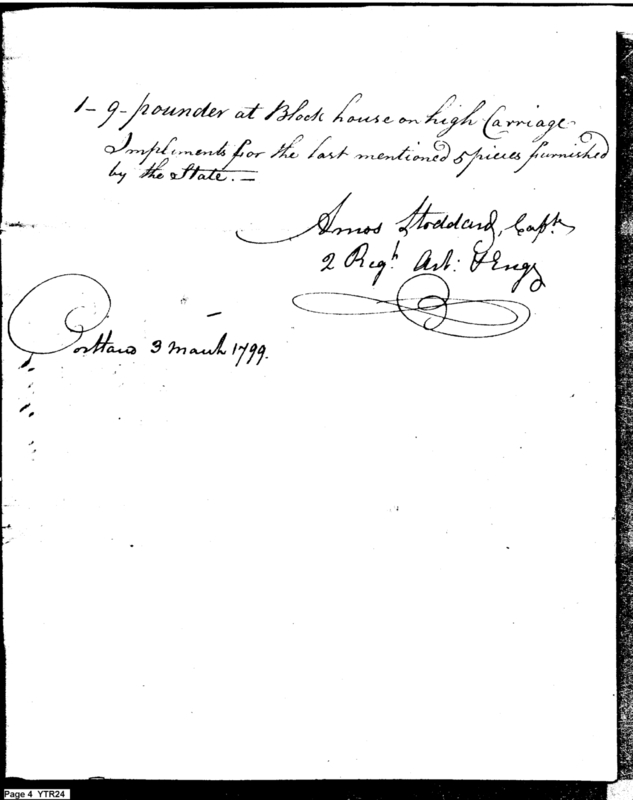 1 - 9 - pounder at Block house on high Carriage
Impliments for the last mentioned 5 pieces furnished
by the State. -
Amos Stoddard, Capt.
2 Regt. Art: & Engs
Portland 3 March 1799.
Page 4 YTR24